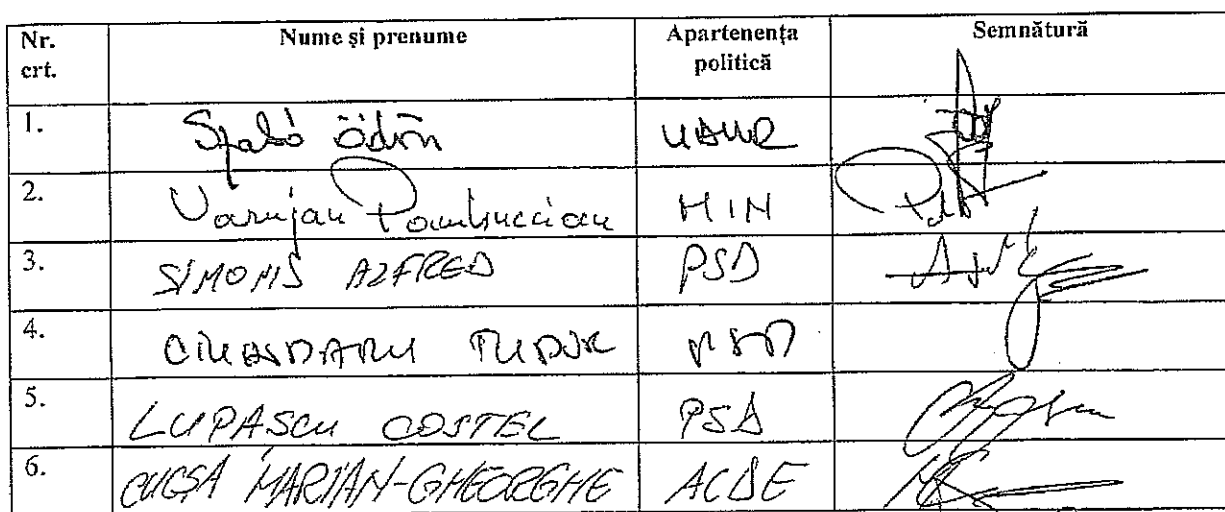 Nr. crt. Nume și prenume Apartenența politică Semnătură
1. Szabó Ödön UDMR
2. Varujan Pambuccian MIN
3. SIMONIS ALFRED PSD
4. CIUHODARU TUDOR PSD
5. LUPASCU COSTEL PSD
6. CUCȘA MARIAN-GHEORGHE ALDE